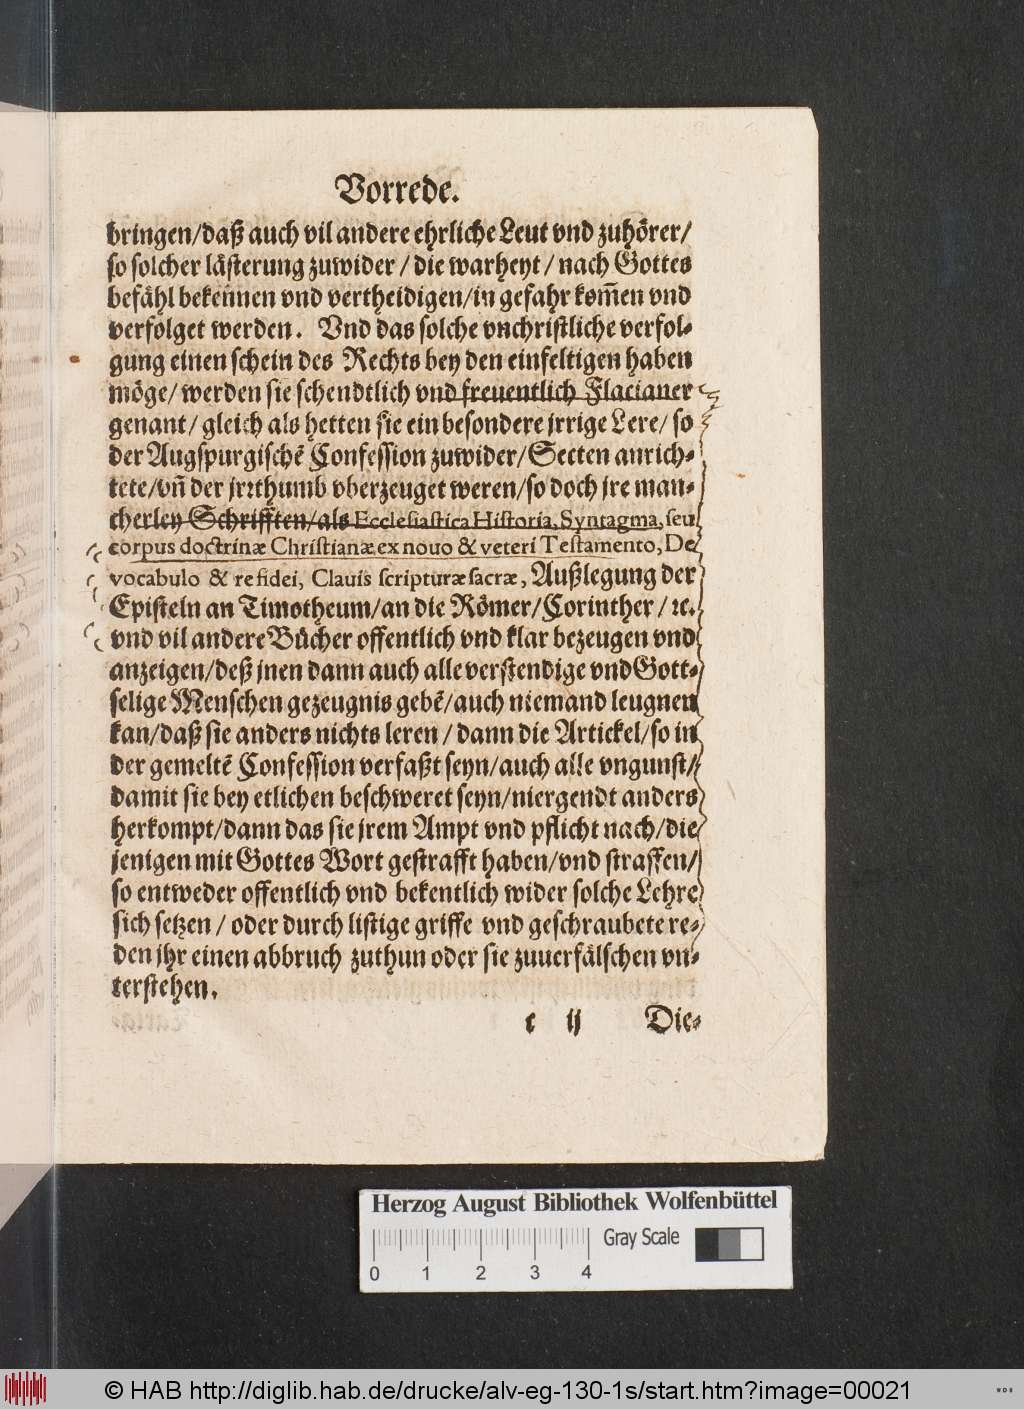 Vorrede.
bringen/daß auch vil andere ehrliche Leut vnd zuhörer/
so solcher lästerung zuwider / die warheyt / nach Gottes
befähl bekennen vnd vertheidigen/in gefahr kom̄en vnd
verfolget werden. Vnd das solche vnchristliche verfol-
gung einen schein des Rechts bey den einfeltigen haben
möge/ werden sie schendtlich vnd freuentlich Flacianer
genant/ gleich als hetten sie ein besondere jrrige Lere/ so
der Augspurgischē Confession zuwider/ Secten anrich-
tete/vñ der jrꝛthumb vberzeuget weren/so doch jre man-
cherley Schrifften/als Ecclesiastica Historia, Syntagma, seu
corpus doctrinæ Christianæ ex nouo & veteri Testamento, De
vocabulo & re fidei, Clauis scripturæ sacræ, Außlegung der
Episteln an Timotheum/an die Römer/Corinther /ꝛc.
vnd vil andere Bücher offentlich vnd klar bezeugen vnd
anzeigen/deß jnen dann auch alle verstendige vnd Gott-
selige Menschen gezeugnis gebē/auch niemand leugnen
kan/daß sie anders nichts leren / dann die Artickel/so in
der gemeltē Confession verfaßt seyn/auch alle vngunst/
damit sie bey etlichen beschweret seyn/niergendt anders
herkompt/dann das sie jrem Ampt vnd pflicht nach/die
jenigen mit Gottes Wort gestrafft haben/vnd straffen/
so entweder offentlich vnd bekentlich wider solche Lehre
sich setzen / oder durch listige griffe vnd geschraubete re-
den jhr einen abbruch zuthun oder sie zuuerfälschen vn-
terstehen.
c ij Die-
Herzog August Bibliothek Wolfenbüttel
Gray Scale
0 1 2 3 4
© HAB http://diglib.hab.de/drucke/alv-eg-130-1s/start.htm?image=00021